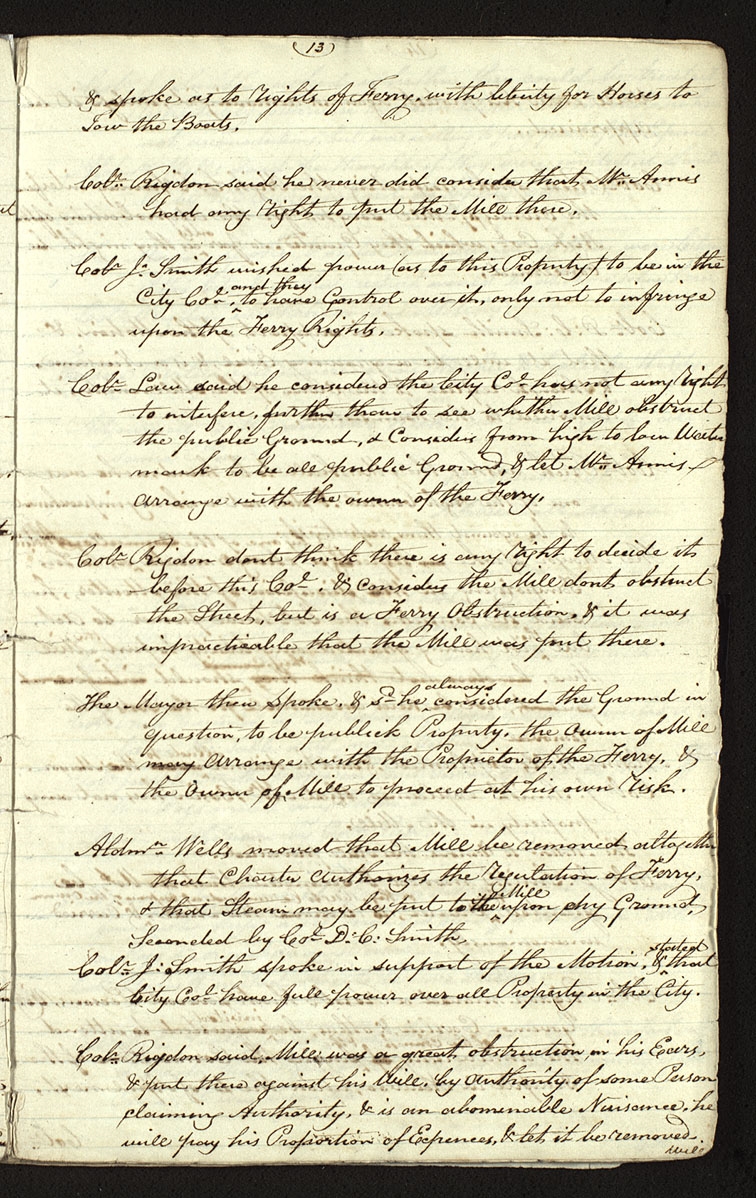 (13)
& spoke as to rights of Ferry. with liberty for Horses to
Tow the Boats.
Cobr. Rigdon said he never did consider that Mr. Annis
had any right to put the Mill there.
Cobr J. Smith wished power (as to this Property) to be in the
City Col. and they to have Control over it, only not to infringe
upon the Ferry Rights.
Cobr Law said he considered the City Col has not any right
to interfere, further than to see whither Mill obstruct
the public Ground, & Considers from high to low Water
mark to be all public Ground, & let Mr. Annis
arrange with the owner of the Ferry.
Cobr Rigdon dont think there is any right to decide it
before this Col. & considers the Mill dont obstruct
the Street, but is a Ferry Obstruction. & it was
impracticable that the Mill was put there.
The Mayor then spoke. & sd. he always considered the Ground in
question, to be publick Property. the owner of Mill
may arrange with the Proprietor of the Ferry. &
the owner of Mill to proceed at his own risk.
Aldmn. Wells moved that Mill be removed altogether
that Charter authorizes the regulation of Ferry.
& that Steam may be put to the Mill upon dry Ground,
Seconded by Col. D. C. Smith.
Cobr. J. Smith spoke in support of the Motion, & stated that
City Col have full power over all Property in the City.
Cobr. Rigdon said, Mill was a great obstruction, in his Ears,
& put there against his Will, by authority of some Person
claiming Authority, & is an abominable Nuisance. he
will pay his Proportion of Expences, & let it be removed.
will